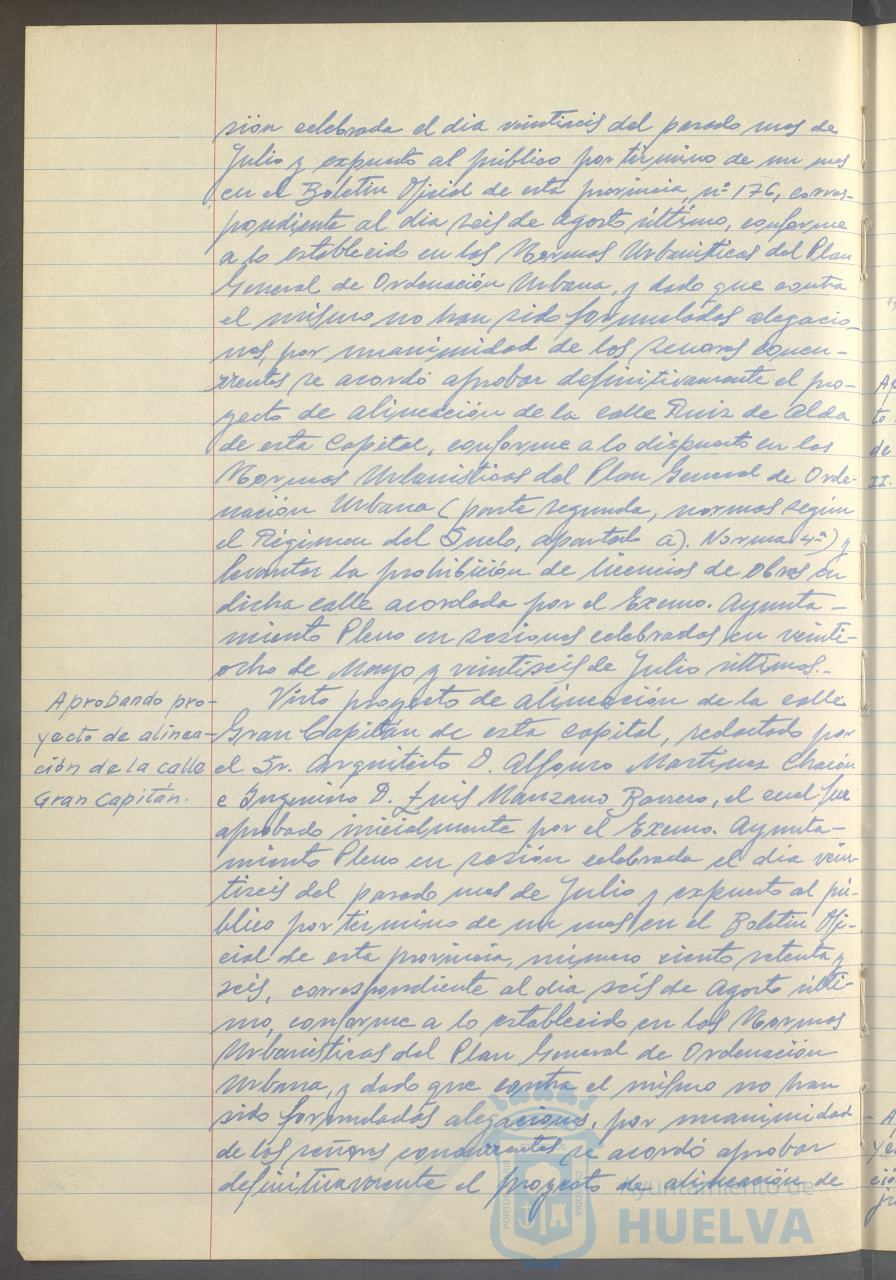 sión celebrada el dia veintiseis del pasado mes de
Julio y expuesto al público por término de un mes
en el Boletin Oficial de esta provincia, nº 176, corres-
pondiente al dia seis de Agosto último, conforme
a lo establecido en las Normas Urbanisticas del Plan
General de Ordenación Urbana, y dado que contra
el mismo no han sido formuladas alegacio-
nes, por unanimidad de los señores concu-
rrentes se acordó aprobar definitivamente el pro-
yecto de alineación de la calle Ruiz de Alda
de esta Capital, conforme a lo dispuesto en las
Normas Urbanisticas del Plan General de Orde-
nación Urbana (parte segunda, normas según
el Régimen del Suelo, apartado a). Norma 4ª) y
levantar la prohibición de licencias de Obras en
dicha calle acordada por el Excmo. Ayunta-
miento Pleno en sesiones celebradas en veinti-
ocho de Mayo y veintiseis de Julio últimos.-
Aprobando pro-
yecto de alinea-
ción de la calle
Gran Capitán.
Visto proyecto de alineación de la calle
Gran Capitán de esta capital, redactado por
el Sr. Arquitecto D. Alfonso Martinez Chacón
e Ingeniero D. Luis Manzano Barrero, el cual fue
aprobado inicialmente por el Excmo. Ayunta-
miento Pleno en sesión celebrada el dia vein-
tiseis del pasado mes de Julio y expuesto al pú-
blico por término de un mes en el Boletin Ofi-
cial de esta provincia, número ciento setenta y
seis, correspondiente al dia seis de Agosto últi-
mo, conforme a lo establecido en las Normas
Urbanisticas del Plan General de Ordenación
Urbana, y dado que contra el mismo no han
sido formuladas alegaciones, por unanimidad
de los señores concurrentes se acordó aprobar
definitivamente el proyecto de alineación de
Ayuntamiento de
HUELVA